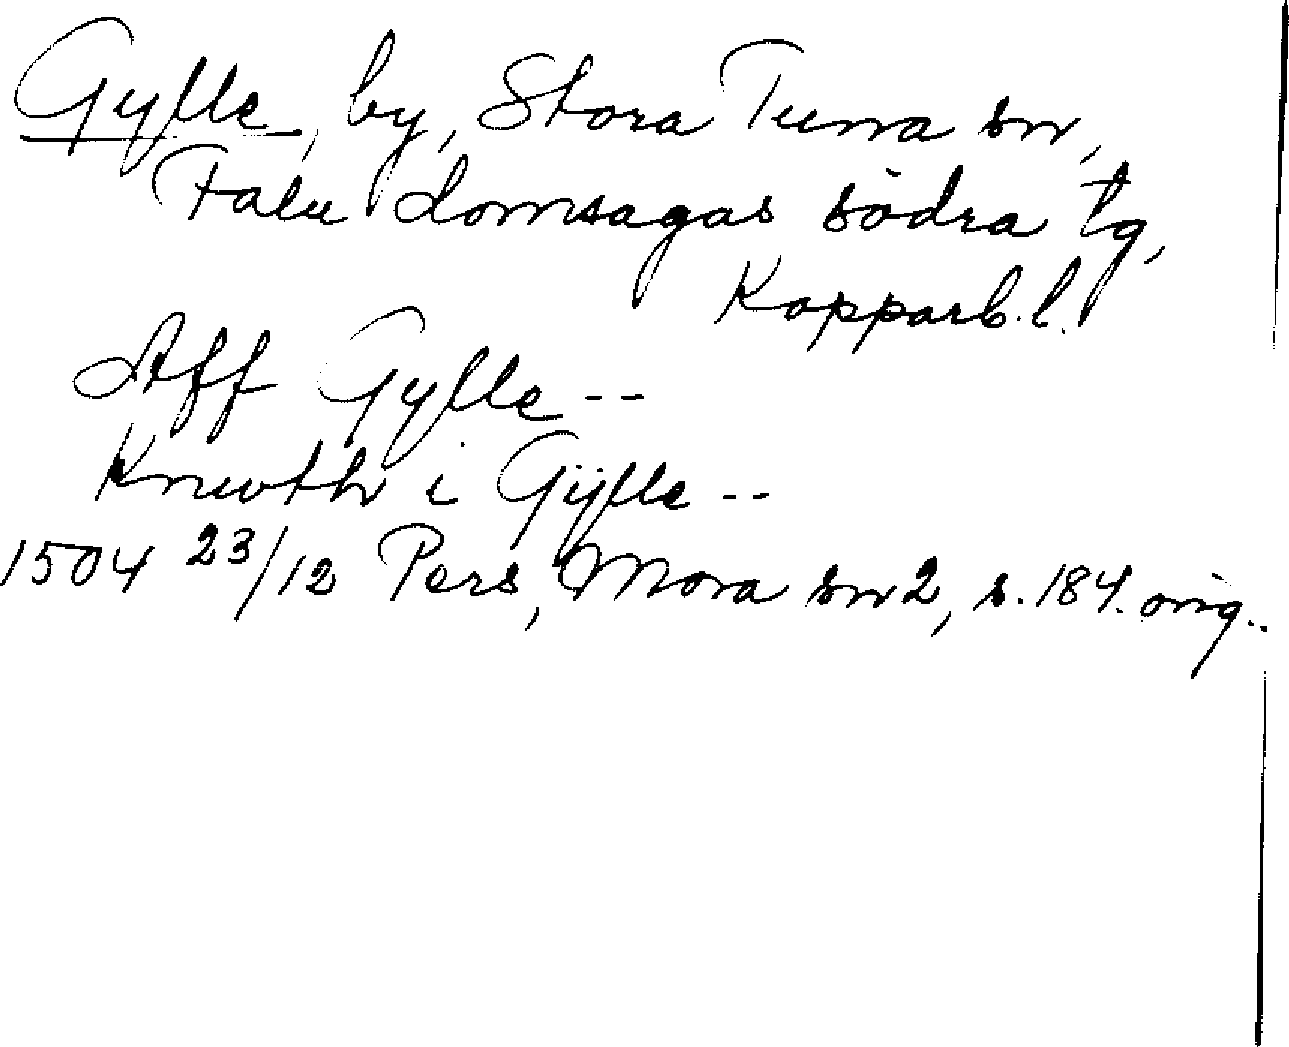 Gylle, by, Stora Tuna sn,
Falu domsagas södra tg,
Kopparb. l.
Aff Gylle --
Knwth i Gÿlle --
1504 23/12 Pers, Mora sn 2, s. 184. orig..